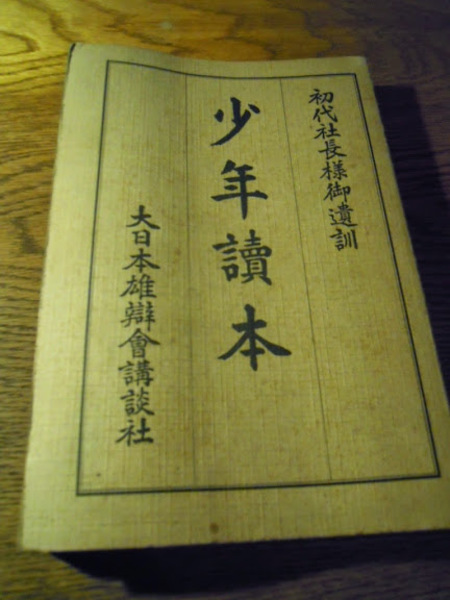 初代社長様御遺訓
少年讀本
大日本雄辯會講談社